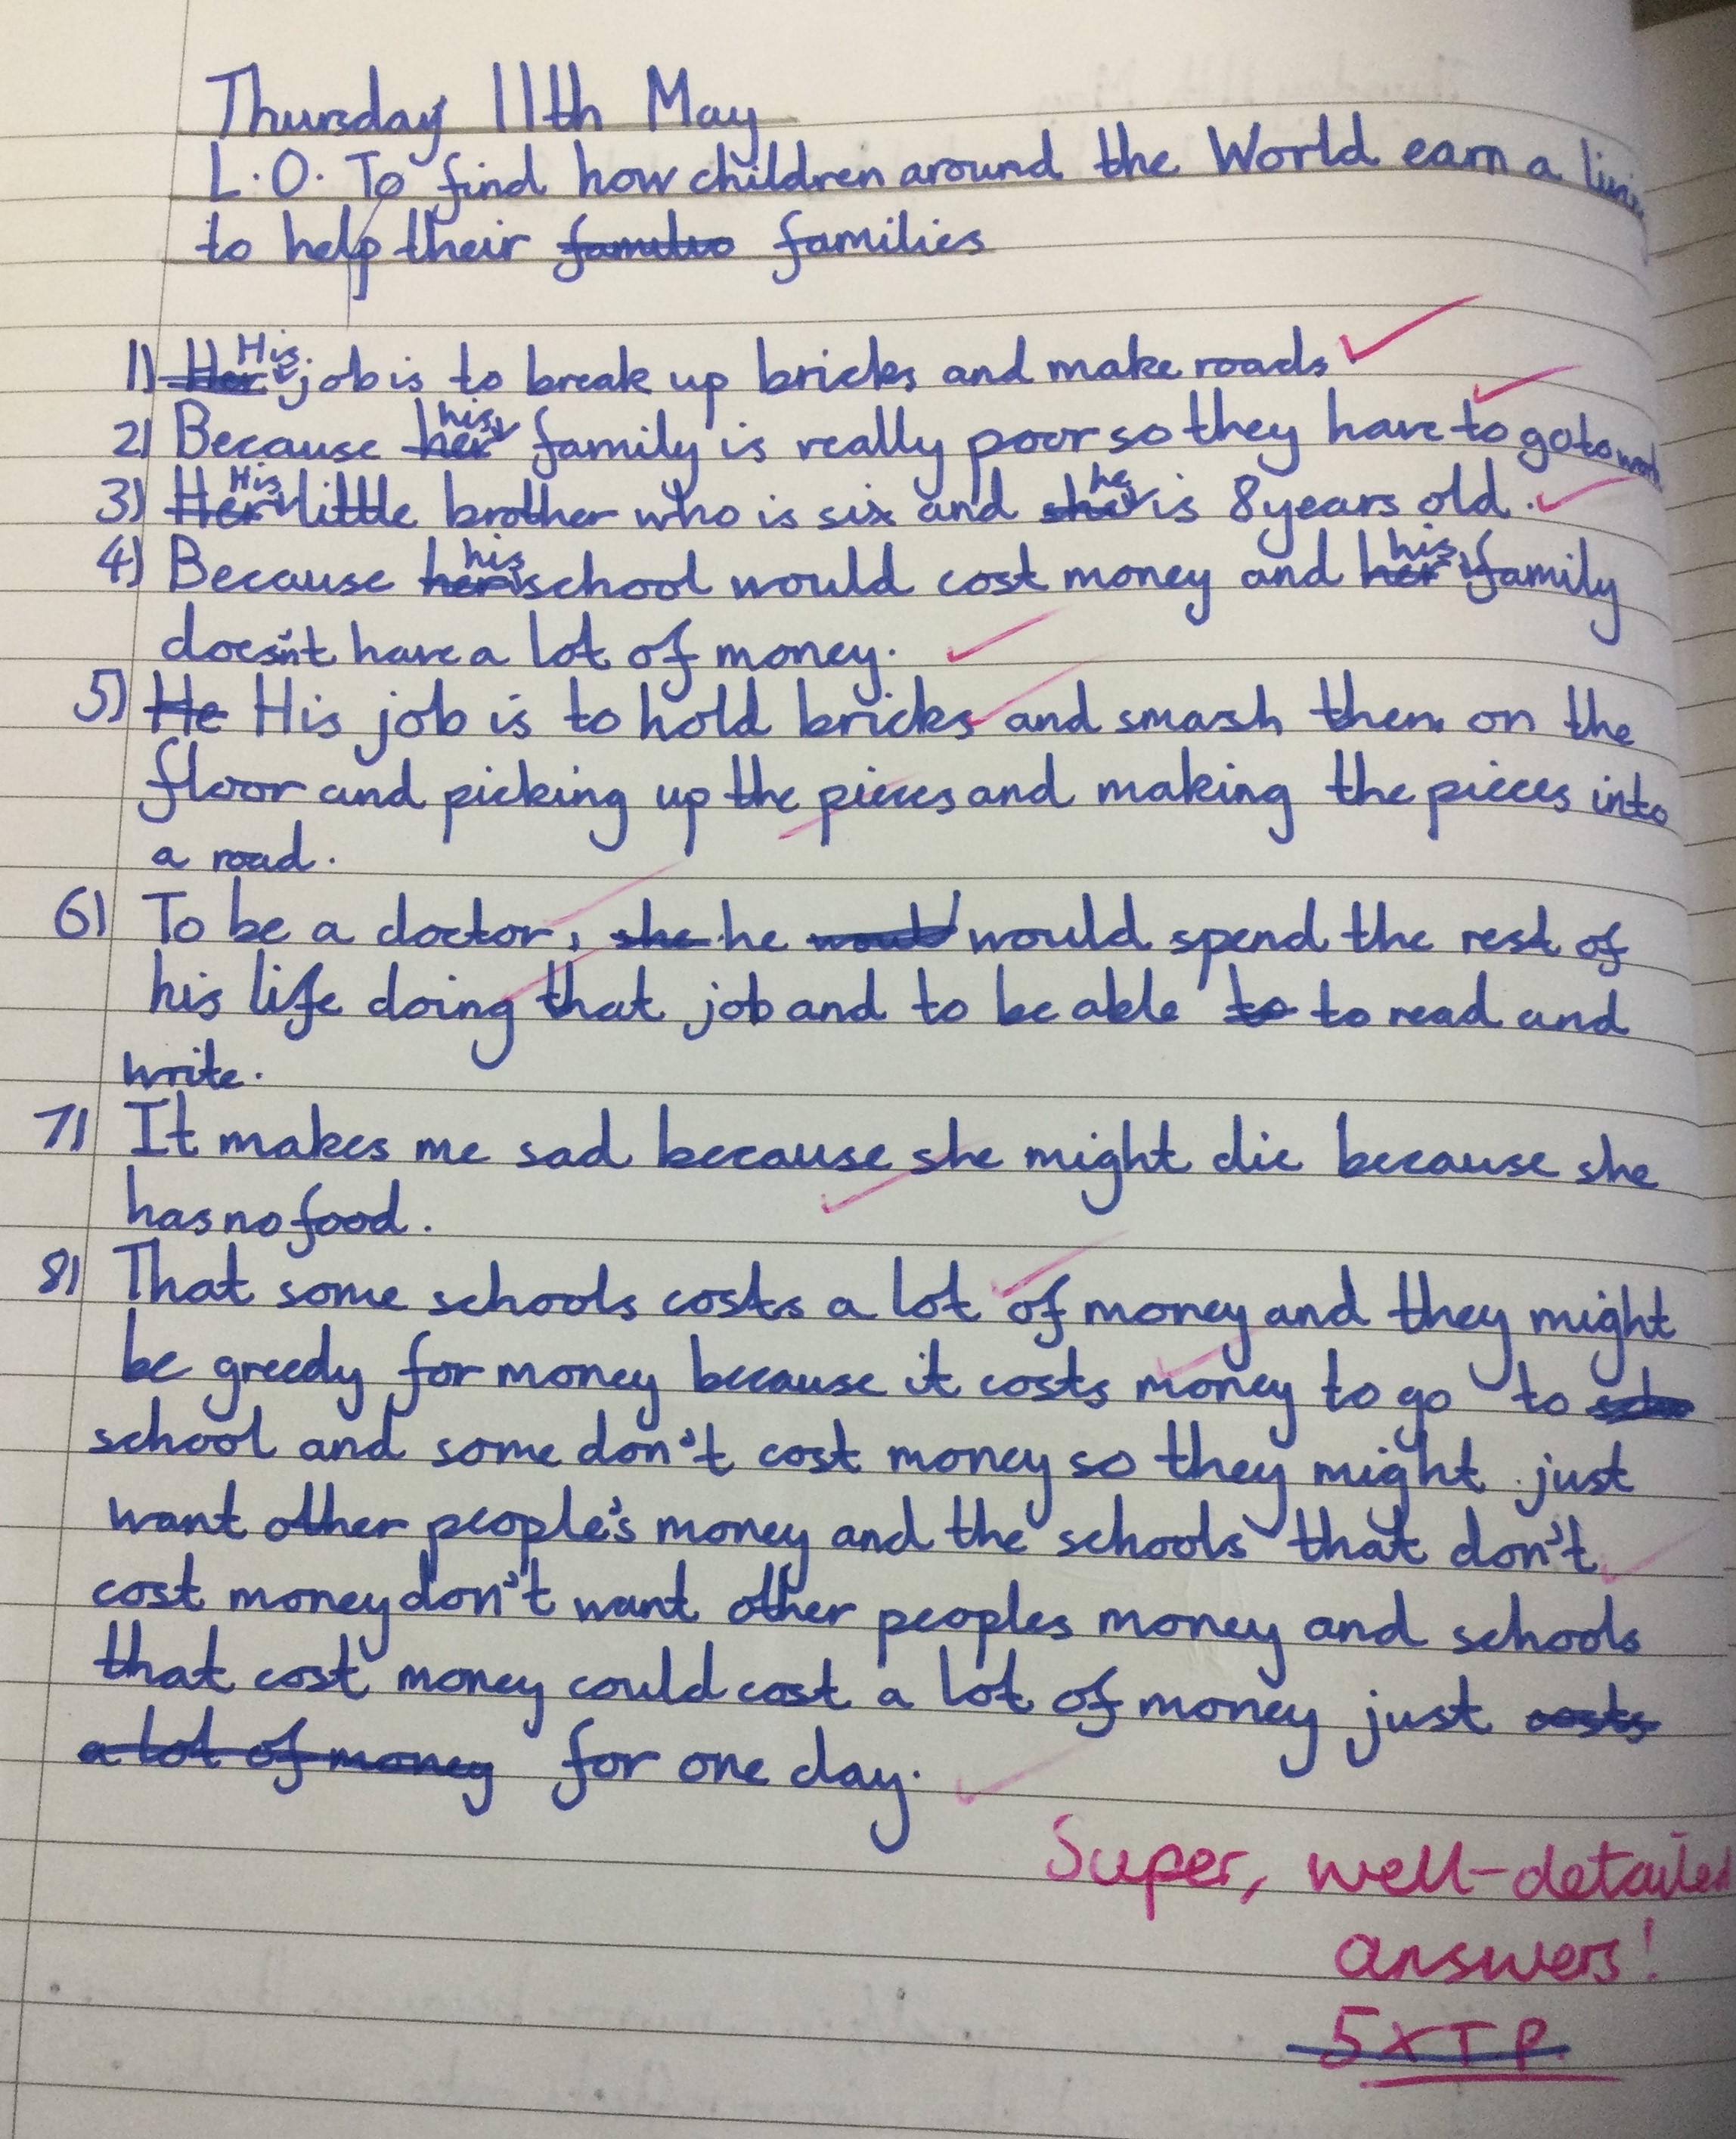 Thursday 11th May
L.O. To find how children around the World earn a
to help their families
1) His job is to break up bricks and make roads
2) Because his family is really poor so they have to go to work
3) His little brother who is six and he is 8 years old.
4) Because his school would cost money and his family
doesn't have a lot of money.
5) He His job is to hold bricks and smash them on the
floor and picking up the pieces and making the pieces into
a road.
6) To be a doctor, she he would would spend the rest of
his life doing that job and to be able to to read and
write.
7) It makes me sad because she might die because she
has no food.
8) That some schools costs a lot of money and they might
be greedy for money because it costs money to go to
school and some don't cost money so they might just
want other people's money and the schools that don't
cost money don't want other peoples money and schools
that cost money could cost a lot of money just costs
a lot of money for one day.
Super, well-detailed
answers!
5xTP.